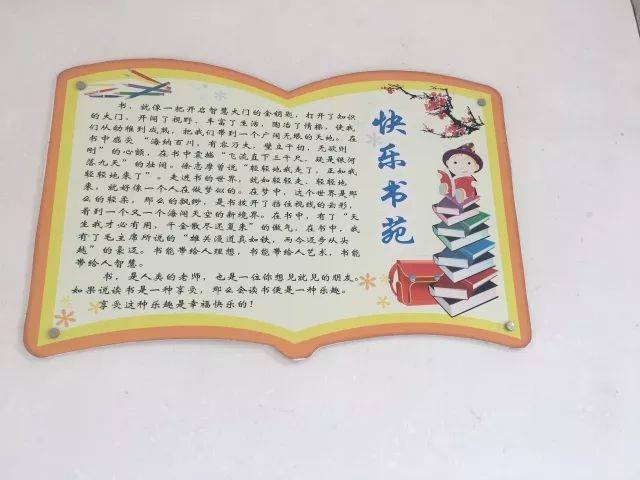 快乐书苑
书，就像一把开启智慧大门的金钥匙，打开了知识
的大门，开阔了视野，丰富了生活，陶冶了情操，使我
们从幼稚到成熟，把我们带到一个广阔无垠的天地。在
书中感受“海纳百川，有容乃大，壁立千仞，无欲则
刚”的心额，在书中震撼“飞流直下三千尺，疑是银河
落九天”的壮阔。徐志摩曾说“轻轻地我走了，正如我
轻轻地来了”。走进书的世界，就如轻轻走，轻轻地
来，就好像一个人在做梦似的。在梦中，这个世界是那
么的轻柔，那么的飘渺，是书拨开了挡住视线的云彩，
看到一个又一个海阔天空的新境界。在书中，有了“天
生我才必有用，千金散尽还复来”的傲气，在书中，我
有了毛主席所说的“雄关漫道真如铁，而今迈步从头
越”的豪迈。书能带给人理想，书能带给人艺术，书能
带给人智慧。
书，是人类的老师，也是一位你想见就见的朋友。
如果说读书是一种享受，那么会读书便是一种乐趣。
享受这种乐趣是幸福快乐的！